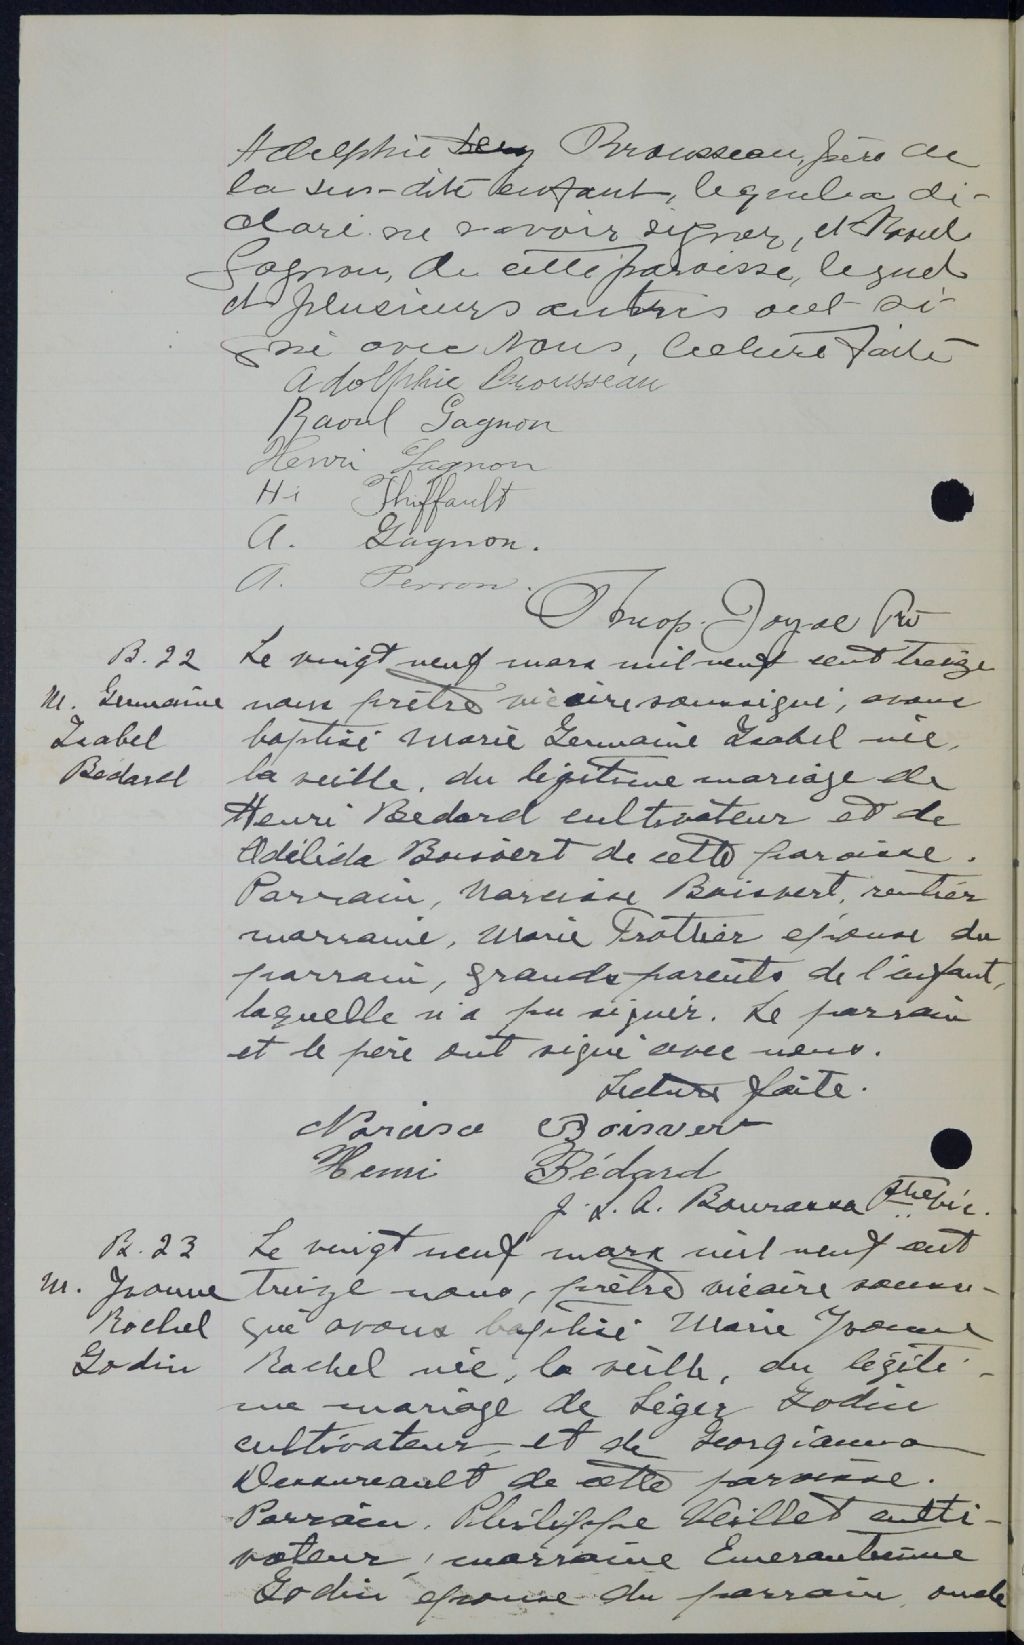 Adelphie Brousseau, père de
la sus-dite enfant, lequel a dé-
claré ne savoir signer, et Raoul
Gagnon, de cette paroisse, lequel
et plusieurs autres ont si-
gné avec Nous, lecture faite
Adolphie Brousseau
Raoul Gagnon
Henri Gagnon
H. Thiffault
A. Gagnon.
A. Perron.
Joyal Ptr
B. 22
M. Germaine
Isabel
Bédard
Le vingt neuf mars mil neuf cent treize
nous prêtre vicaire soussigné, avons
baptisé Marie Germaine Isabel née,
la veille, du légitime mariage de
Henri Bedard cultivateur et de
Odélida Boisvert de cette paroisse.
Parrain, Narcisse Boisvert, rentier
marraine, Marie Trottier épouse du
parrain, grands parents de l'enfant,
laquelle n'a pu signer. Le parrain
et le père ont signé avec nous.
Lecture faite.
Narcise Boisvert
Henri Bédard
J. L. A. Bourassa Ptre vic.
B. 23
M. Yvonne
Rachel
Godin
Le vingt neuf mars mil neuf cent
treize nous, prêtre vicaire soussi-
gné avons baptisé Marie Yvonne
Rachel née, la veille, du légiti-
me mariage de Léger Godin
cultivateur et de Georgianna
Dessureault de cette paroisse.
Parrain, Philippe Veillet culti-
vateur, marraine Emerantienne
Godin épouse du parrain, oncle